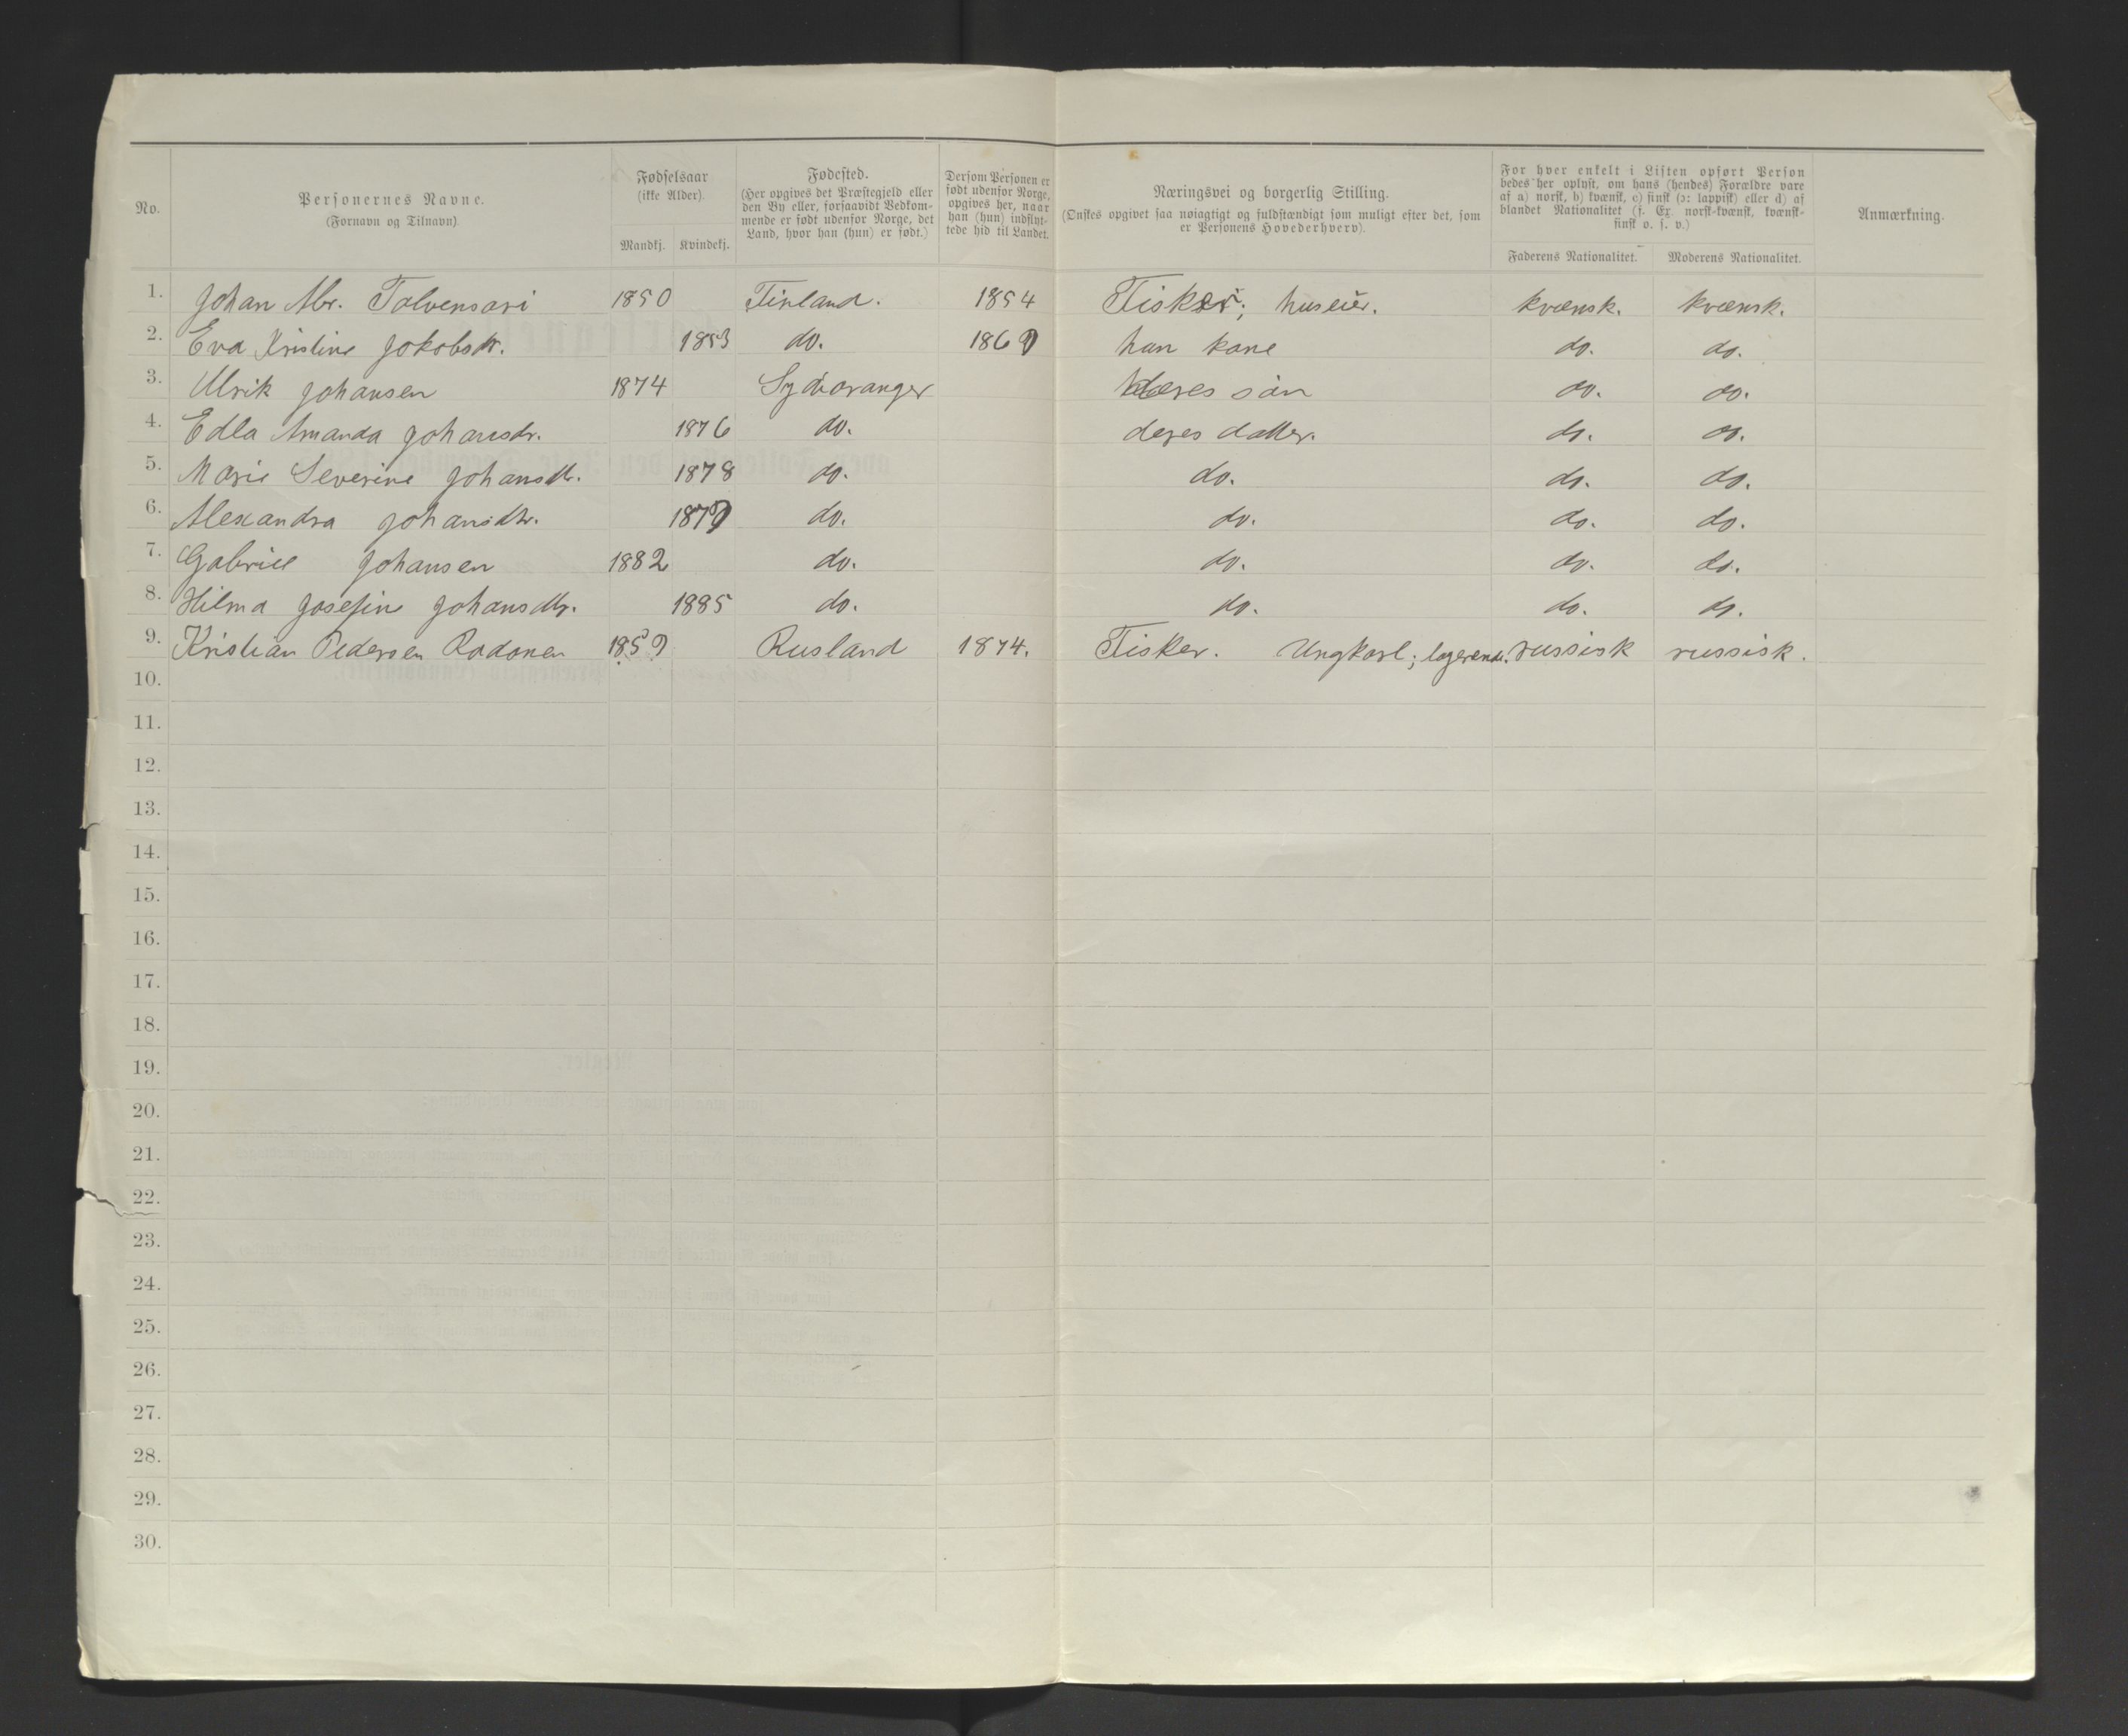 No.
Personernes Navne.
(Fornavn og Tilnavn)
Fødselsaar
(ikke Alder).
Mandkj. Kvindekj.
Fødested.
(Her opgives det Præstegjeld eller
den By eller, forsaavidt Vedkom-
mende er født udenfor Norge, det
Land, hvor han (hun) er født.)
Dersom Personen er
født udenfor Norge,
opgives her, naar
han (hun) indflyt-
tede hid til Landet.
Næringsvei og borgerlig Stilling.
(Ønskes opgivet saa nøiagtigt og fuldstændigt som muligt efter det, som
er Personens Hovederhverv).
For hver enkelt i Listen opført Person
bedes her oplyst, om hans (hendes) Forældre vare
af a) norsk, b) kvænsk, c) finsk (ɔ: lappisk) eller d) af
blandet Nationalitet (f. Ex. norsk-kvænsk, kvænsk-
finsk o. s. v.)
Faderens Nationalitet. Moderens Nationalitet.
Anmærkning.
1. Johan Abr. Tolvensari 1850 Finland. 1854 Fisker; huseier. kvænsk. kvænsk.
2. Eva Kristine Jokobsdr. 1853 do. 1869 han kone do. do.
3. Ulrik Johansen 1874 Sydvaranger deres søn do. do.
4. Edla Amanda Johansdr. 1876 do. deres datter. do. do.
5. Marie Severine Johansdtr. 1878 do. do. do. do.
6. Alexandra Johansdtr. 1879 do. do. do. do.
7. Gabriel Johansen 1882 do. do. do. do.
8. Hilma Josefine Johansdtr. 1885 do. do. do. do.
9. Kristian Pedersen Rodonen 1859 Rusland 1874. Fisker. Ungkarl; logerende. russisk russisk.
10.
11.
12.
13.
14.
15.
16.
17.
18.
19.
20.
21.
22.
23.
24.
25.
26.
27.
28.
29.
30.